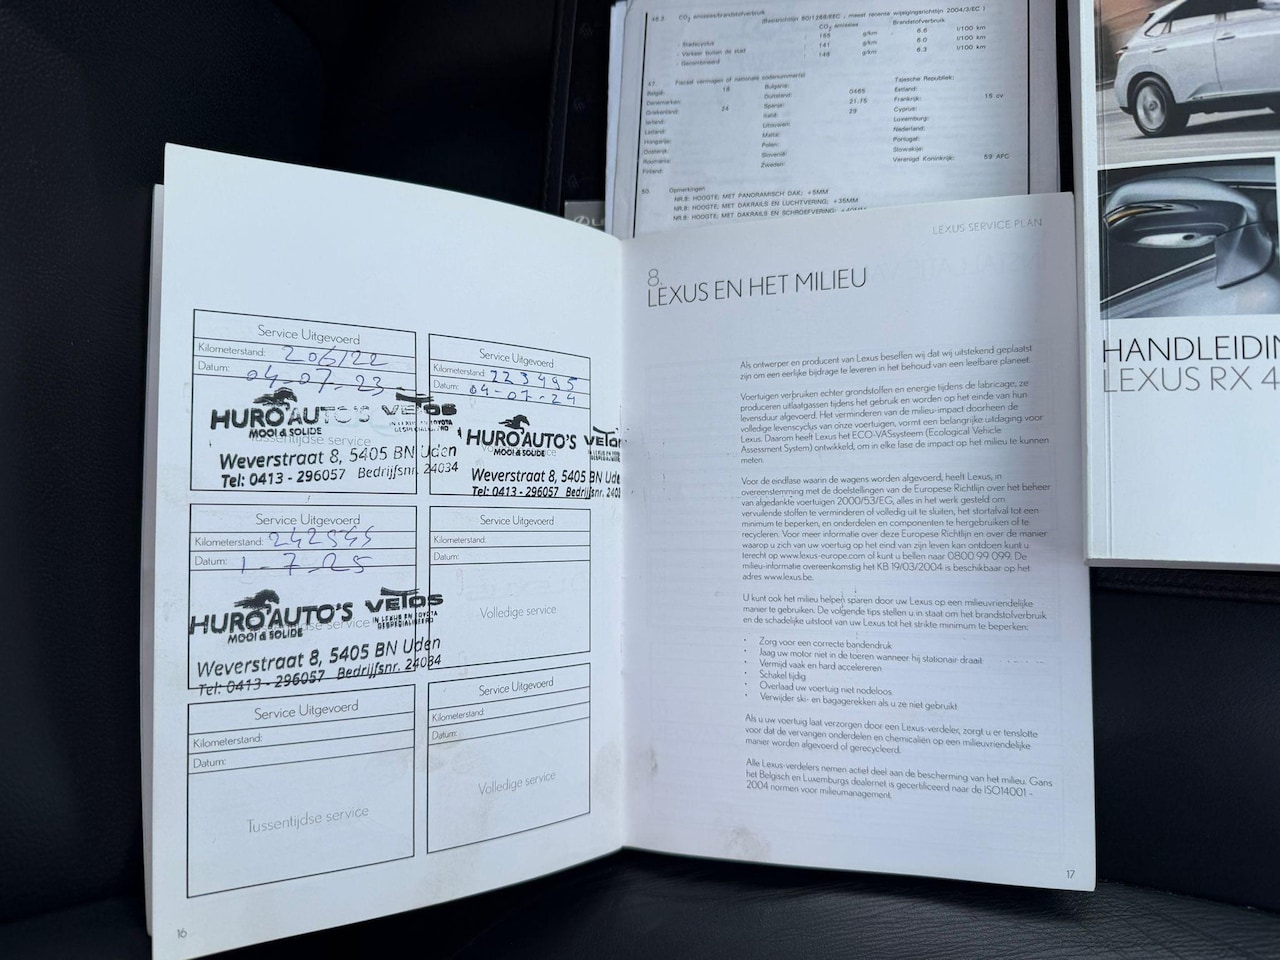 46.3. CO2 emissies/brandstofverbruik
(Basisrichtlijn 80/1268/EEC , meest recente wijzigingsrichtlijn 2004/3/EC )
CO2 emissies Brandstofverbruik
- Stadscyclus 168 g/km 6.6 l/100 km
- Verkeer buiten de stad 141 g/km 6.0 l/100 km
- Gecombineerd 148 g/km 6.3 l/100 km
47. Fiscaal vermogen of nationale codenummer(s)
België: 18 Bulgarije: Tsjechische Republiek:
Denemarken: Duitsland: 0465 Estland:
Griekenland: 24 Spanje: 21.75 Frankrijk: 15 cv
Ierland: Italië: 29 Cyprus:
Letland: Litouwen: Luxemburg:
Hongarije: Malta: Nederland:
Oostenrijk: Polen: Portugal:
Roemenië: Slovenië: Slowakije:
Finland: Zweden: Verenigd Koninkrijk: 59 APC
50. Opmerkingen
NR.8: HOOGTE; MET PANORAMISCH DAK; +5MM
NR.8: HOOGTE; MET DAKRAILS EN LUCHTVERING; +35MM
NR.8: HOOGTE; MET DAKRAILS EN SCHROEFVERING;
HANDLEIDIN
LEXUS RX 4
Service Uitgevoerd
Kilometerstand: 206122
Datum: 04-07-23
HURO AUTO'S VETOS
MOOI & SOLIDE IN LEXUS EN TOYOTA GESPECIALISEERD
Tussentijdse service
Weverstraat 8, 5405 BN Uden
Tel: 0413 - 296057 Bedrijfsnr. 24034
Service Uitgevoerd
Kilometerstand: 223495
Datum: 04-07-24
HURO AUTO'S VETOS
MOOI & SOLIDE
Weverstraat 8, 5405 BN Ude
Tel: 0413 - 296057 Bedrijfsnr. 240
Service Uitgevoerd
Kilometerstand: 242545
Datum: 1-7-25
HURO AUTO'S VETOS
MOOI & SOLIDE IN LEXUS EN TOYOTA GESPECIALISEERD
Weverstraat 8, 5405 BN Uden
Tel: 0413 - 296057 Bedrijfsnr. 24034
Service Uitgevoerd
Kilometerstand:
Datum:
Volledige service
Service Uitgevoerd
Kilometerstand:
Datum:
Tussentijdse service
Service Uitgevoerd
Kilometerstand:
Datum:
Volledige service
16
LEXUS SERVICE PLAN
8.
LEXUS EN HET MILIEU
Als ontwerper en producent van Lexus beseffen wij dat wij uitstekend geplaatst
zijn om een eerlijke bijdrage te leveren in het behoud van een leefbare planeet.
Voertuigen verbruiken echter grondstoffen en energie tijdens de fabricage, ze
produceren uitlaatgassen tijdens het gebruik en worden op het einde van hun
levensduur afgevoerd. Het verminderen van de milieu-impact doorheen de
volledige levenscyclus van onze voertuigen, vormt een belangrijke uitdaging voor
Lexus. Daarom heeft Lexus het ECO-VASsysteem (Ecological Vehicle
Assessment System) ontwikkeld, om in elke fase de impact op het milieu te kunnen
meten.
Voor de eindfase waarin de wagens worden afgevoerd, heeft Lexus, in
overeenstemming met de doelstellingen van de Europese Richtlijn over het beheer
van afgedankte voertuigen 2000/53/EG, alles in het werk gesteld om
vervuilende stoffen te verminderen of volledig uit te sluiten, het stortafval tot een
minimum te beperken, en onderdelen en componenten te hergebruiken of te
recycleren. Voor meer informatie over deze Europese Richtlijn en over de manier
waarop u zich van uw voertuig op het eind van zijn leven kan ontdoen kunt u
terecht op www.lexus-europe.com of kunt u bellen naar 0800 99 099. De
milieu-informatie overeenkomstig het KB 19/03/2004 is beschikbaar op het
adres www.lexus.be.
U kunt ook het milieu helpen sparen door uw Lexus op een milieuvriendelijke
manier te gebruiken. De volgende tips stellen u in staat om het brandstofverbruik
en de schadelijke uitstoot van uw Lexus tot het strikte minimum te beperken:
• Zorg voor een correcte bandendruk
• Jaag uw motor niet in de toeren wanneer hij stationair draait
• Vermijd vaak en hard accelereren
• Schakel tijdig
• Overlaad uw voertuig niet nodeloos
• Verwijder ski- en bagagerekken als u ze niet gebruikt
Als u uw voertuig laat verzorgen door een Lexus-verdeler, zorgt u er tenslotte
voor dat de vervangen onderdelen en chemicaliën op een milieuvriendelijke
manier worden afgevoerd of gerecycleerd.
Alle Lexus-verdelers nemen actief deel aan de bescherming van het milieu. Gans
het Belgisch en Luxemburgs dealernet is gecertificeerd naar de ISO14001 -
2004 normen voor milieumanagement.
17